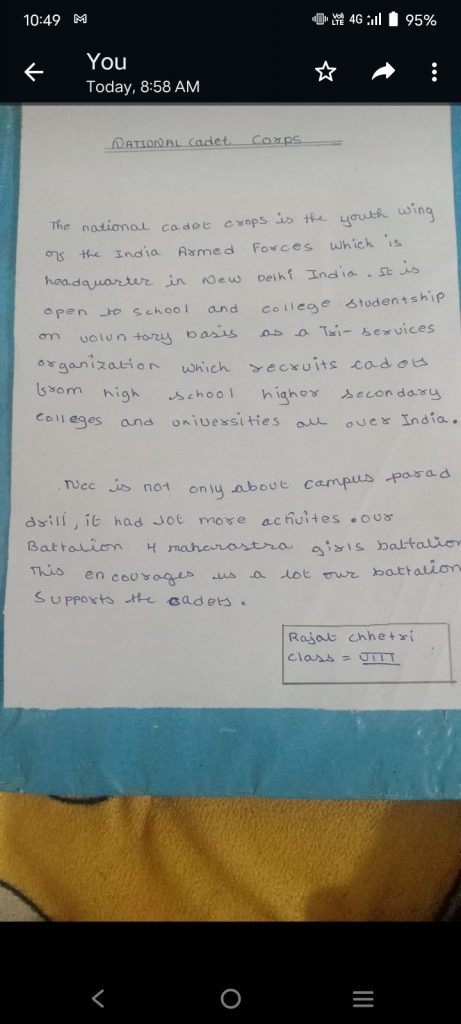 10:49
Vo) LTE 4G 95%
You
Today, 8:58 AM
NATIONAL Cadet Corps
The national cadet crops is the youth wing
of the India Armed Forces which is
headquarter in New Delhi India. It is
open to school and college studentship
on volun tary basis as a Tri- services
organization which recruits cadets
from high school higher secondary
colleges and universities all over India.
NCC is not only about campus parad
drill, it had lot more activites. our
Battalion 4 maharastra girls battalion
This en courages us a lot our battalion
Supports the cadets.
Rajat chhetri
class = VIII